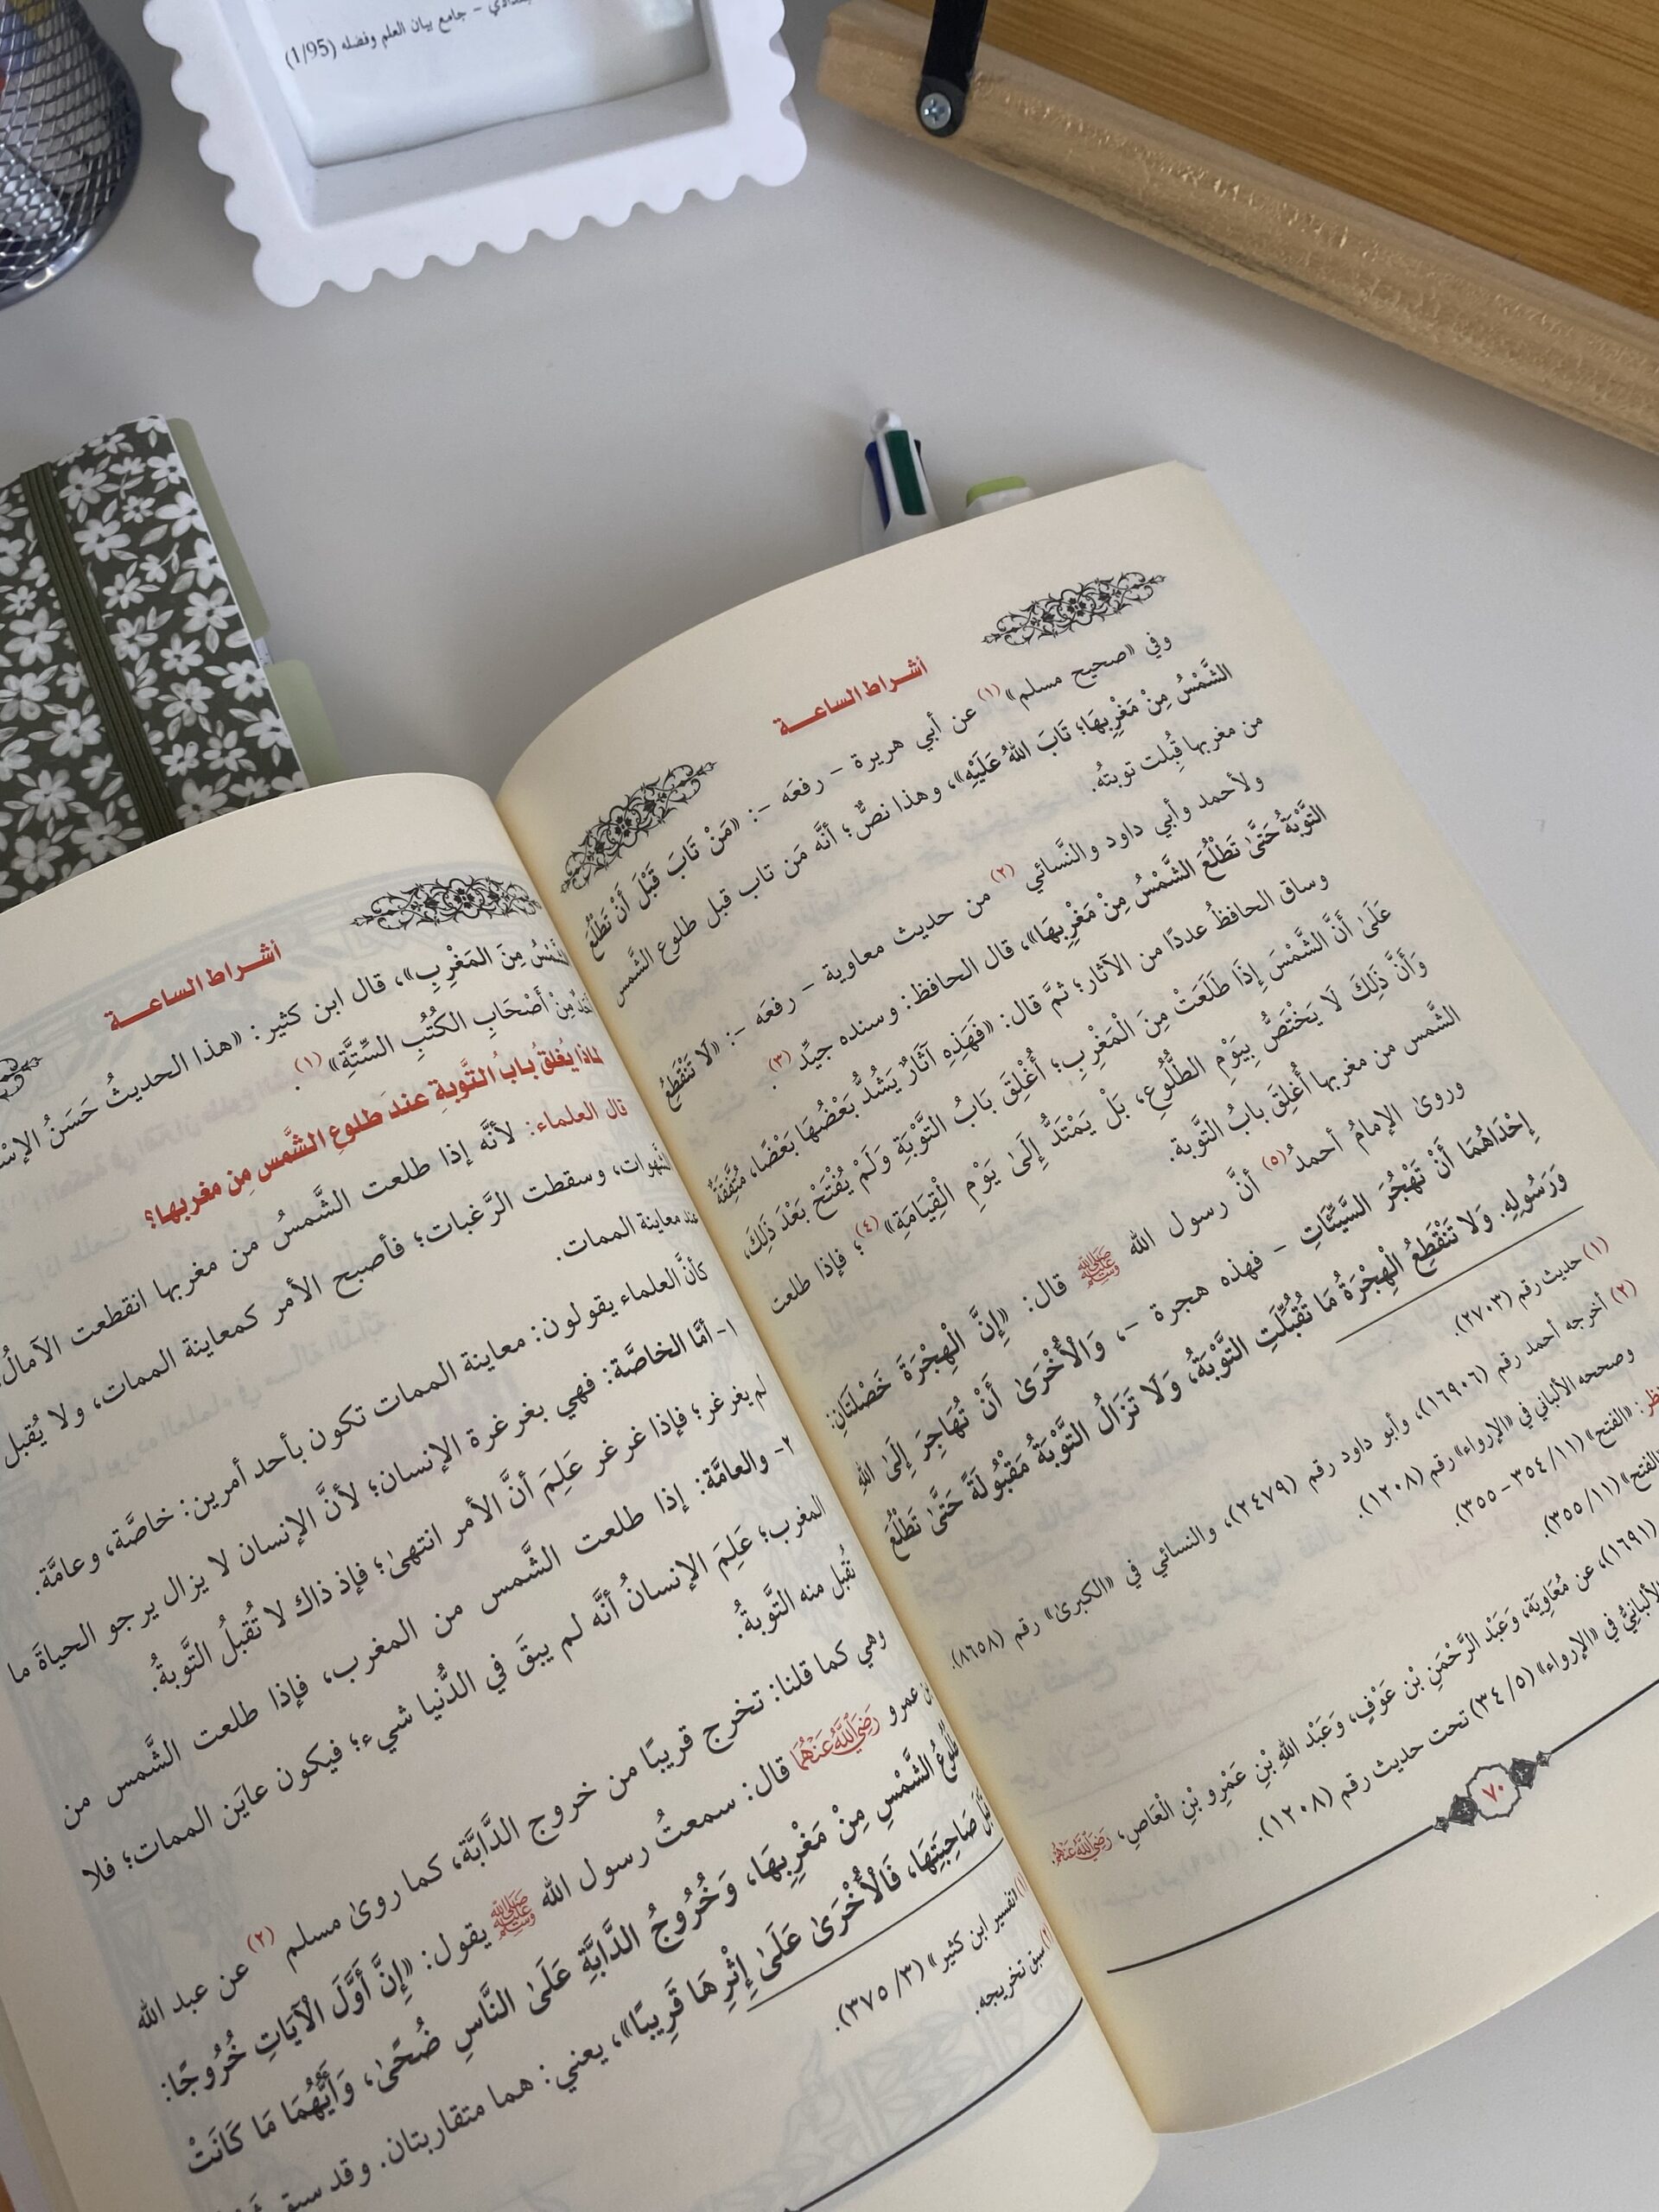 جامع بيان العلم وفضله (1/95)
أشراط الساعة
وفي «صحيح مسلم» (١) عن أبي هريرة - رفعَه -: «مَنْ تَابَ قَبْلَ أَنْ تَطْلُعَ
الشَّمْسُ مِنْ مَغْرِبِهَا؛ تَابَ اللهُ عَلَيْهِ»، وهذا نصٌّ؛ أنَّه مَن تاب قبل طلوع الشَّمس
من مغربها قُبِلت توبتُه.
ولأحمد وأبي داود والنَّسائي (٢) من حديث معاوية - رفعَه -: «لَا تَنْقَطِعُ
التَّوْبَةُ حَتَّىٰ تَطْلُعَ الشَّمْسُ مِنْ مَغْرِبِهَا»، قال الحافظ: وسنده جيِّد (٣).
وساق الحافظُ عددًا من الآثار؛ ثمَّ قال: «فَهَذِهِ آثَارٌ يَشُدُّ بَعْضُهَا بَعْضًا، مُتَّفِقَةٌ
عَلَىٰ أَنَّ الشَّمْسَ إِذَا طَلَعَتْ مِنَ الْمَغْرِبِ؛ أُغْلِقَ بَابُ التَّوْبَةِ وَلَمْ يُفْتَحْ بَعْدَ ذَلِكَ،
وَأَنَّ ذَلِكَ لَا يَخْتَصُّ بِيَوْمِ الطُّلُوعِ، بَلْ يَمْتَدُّ إِلَىٰ يَوْمِ الْقِيَامَةِ» (٤)؛ فإذا طلعت
الشَّمس من مغربها أُغلِق بابُ التَّوبة.
وروىٰ الإمامُ أحمدُ (٥) أنَّ رسول الله ﷺ قال: «إِنَّ الْهِجْرَةَ خَصْلَتَانِ:
إِحْدَاهُمَا أَنْ تَهْجُرَ السَّيِّئَاتِ - فهذه هجرة -، وَالْأُخْرَىٰ أَنْ تُهَاجِرَ إِلَىٰ اللهِ
وَرَسُولِهِ. وَلَا تَنْقَطِعُ الْهِجْرَةُ مَا تُقُبِّلَتِ التَّوْبَةُ، وَلَا تَزَالُ التَّوْبَةُ مَقْبُولَةً حَتَّىٰ تَطْلُعَ
(١) حديث رقم (٢٧٠٣).
(٢) أخرجه أحمد رقم (١٦٩٠٦)، وأبو داود رقم (٢٤٧٩)، والنسائي في «الكبرىٰ» رقم (٨٦٥٨).
وصححه الألباني في «الإرواء» رقم (١٢٠٨).
«الفتح» (١١/ ٣٥٤ - ٣٥٥).
(١١/ ٣٥٥).
(١٦٩١)، عن مُعَاوِيَة، وَعَبْد الرَّحْمَنِ بْنِ عَوْفٍ، وَعَبْد اللهِ بْنِ عَمْرِو بْنِ الْعَاصِ، رَضِيَ اللَّهُ عَنْهُمْ.
في «الإرواء» (٥/ ٣٤) تحت حديث رقم (١٢٠٨).
٧٠
أشراط الساعة
مِنَ المَغْرِبِ»، قال ابن كثير: «هذا الحديثُ حَسَنُ
مِنْ أَصْحَابِ الكُتُبِ السِّتَّةِ» (١).
لماذا يُغلقُ بابُ التَّوبةِ عندَ طلوعِ الشَّمس مِن مغربها؟
قال العلماء: لأنَّه إذا طلعت الشَّمسُ من مغربها انقطعت الآمالُ
وسقطت الرَّغبات؛ فأصبح الأمر كمعاينة الممات، ولا يُقبل
عند معاينة الممات.
كأنَّ العلماء يقولون: معاينة الممات تكون بأحد أمرين: خاصَّة، وعامَّة.
١- أمَّا الخاصَّة: فهي بغرغرة الإنسان؛ لأنَّ الإنسان لا يزال يرجو الحياةَ ما
لم يغرغر؛ فإذا غرغر عَلِمَ أنَّ الأمر انتهىٰ؛ فإذ ذاك لا تُقبلُ التَّوبةُ.
٢- والعامَّة: إذا طلعت الشَّمس من المغرب، فإذا طلعت الشَّمس من
المغرب؛ عَلِمَ الإنسانُ أنَّه لم يبقَ في الدُّنيا شيء؛ فيكون عايَن الممات؛ فلا
تُقبل منه التَّوبةُ.
وهي كما قلنا: تخرج قريبًا من خروج الدَّابَّة، كما روىٰ مسلم (٢) عن عبد الله
بن عمرو رَضِيَ اللَّهُ عَنْهُمَا قال: سمعتُ رسول الله ﷺ يقول: «إِنَّ أَوَّلَ الْآيَاتِ خُرُوجًا:
طُلُوعُ الشَّمْسِ مِنْ مَغْرِبِهَا، وَخُرُوجُ الدَّابَّةِ عَلَىٰ النَّاسِ ضُحًىٰ، وَأَيُّهُمَا مَا كَانَتْ
قَبْلَ صَاحِبَتِهَا، فَالْأُخْرَىٰ عَلَىٰ إِثْرِهَا قَرِيبًا»، يعني: هما متقاربتان. وقد سبق
(١) «تفسير ابن كثير» (٣/ ٣٧٥).
(٢) سبق تخريجه.